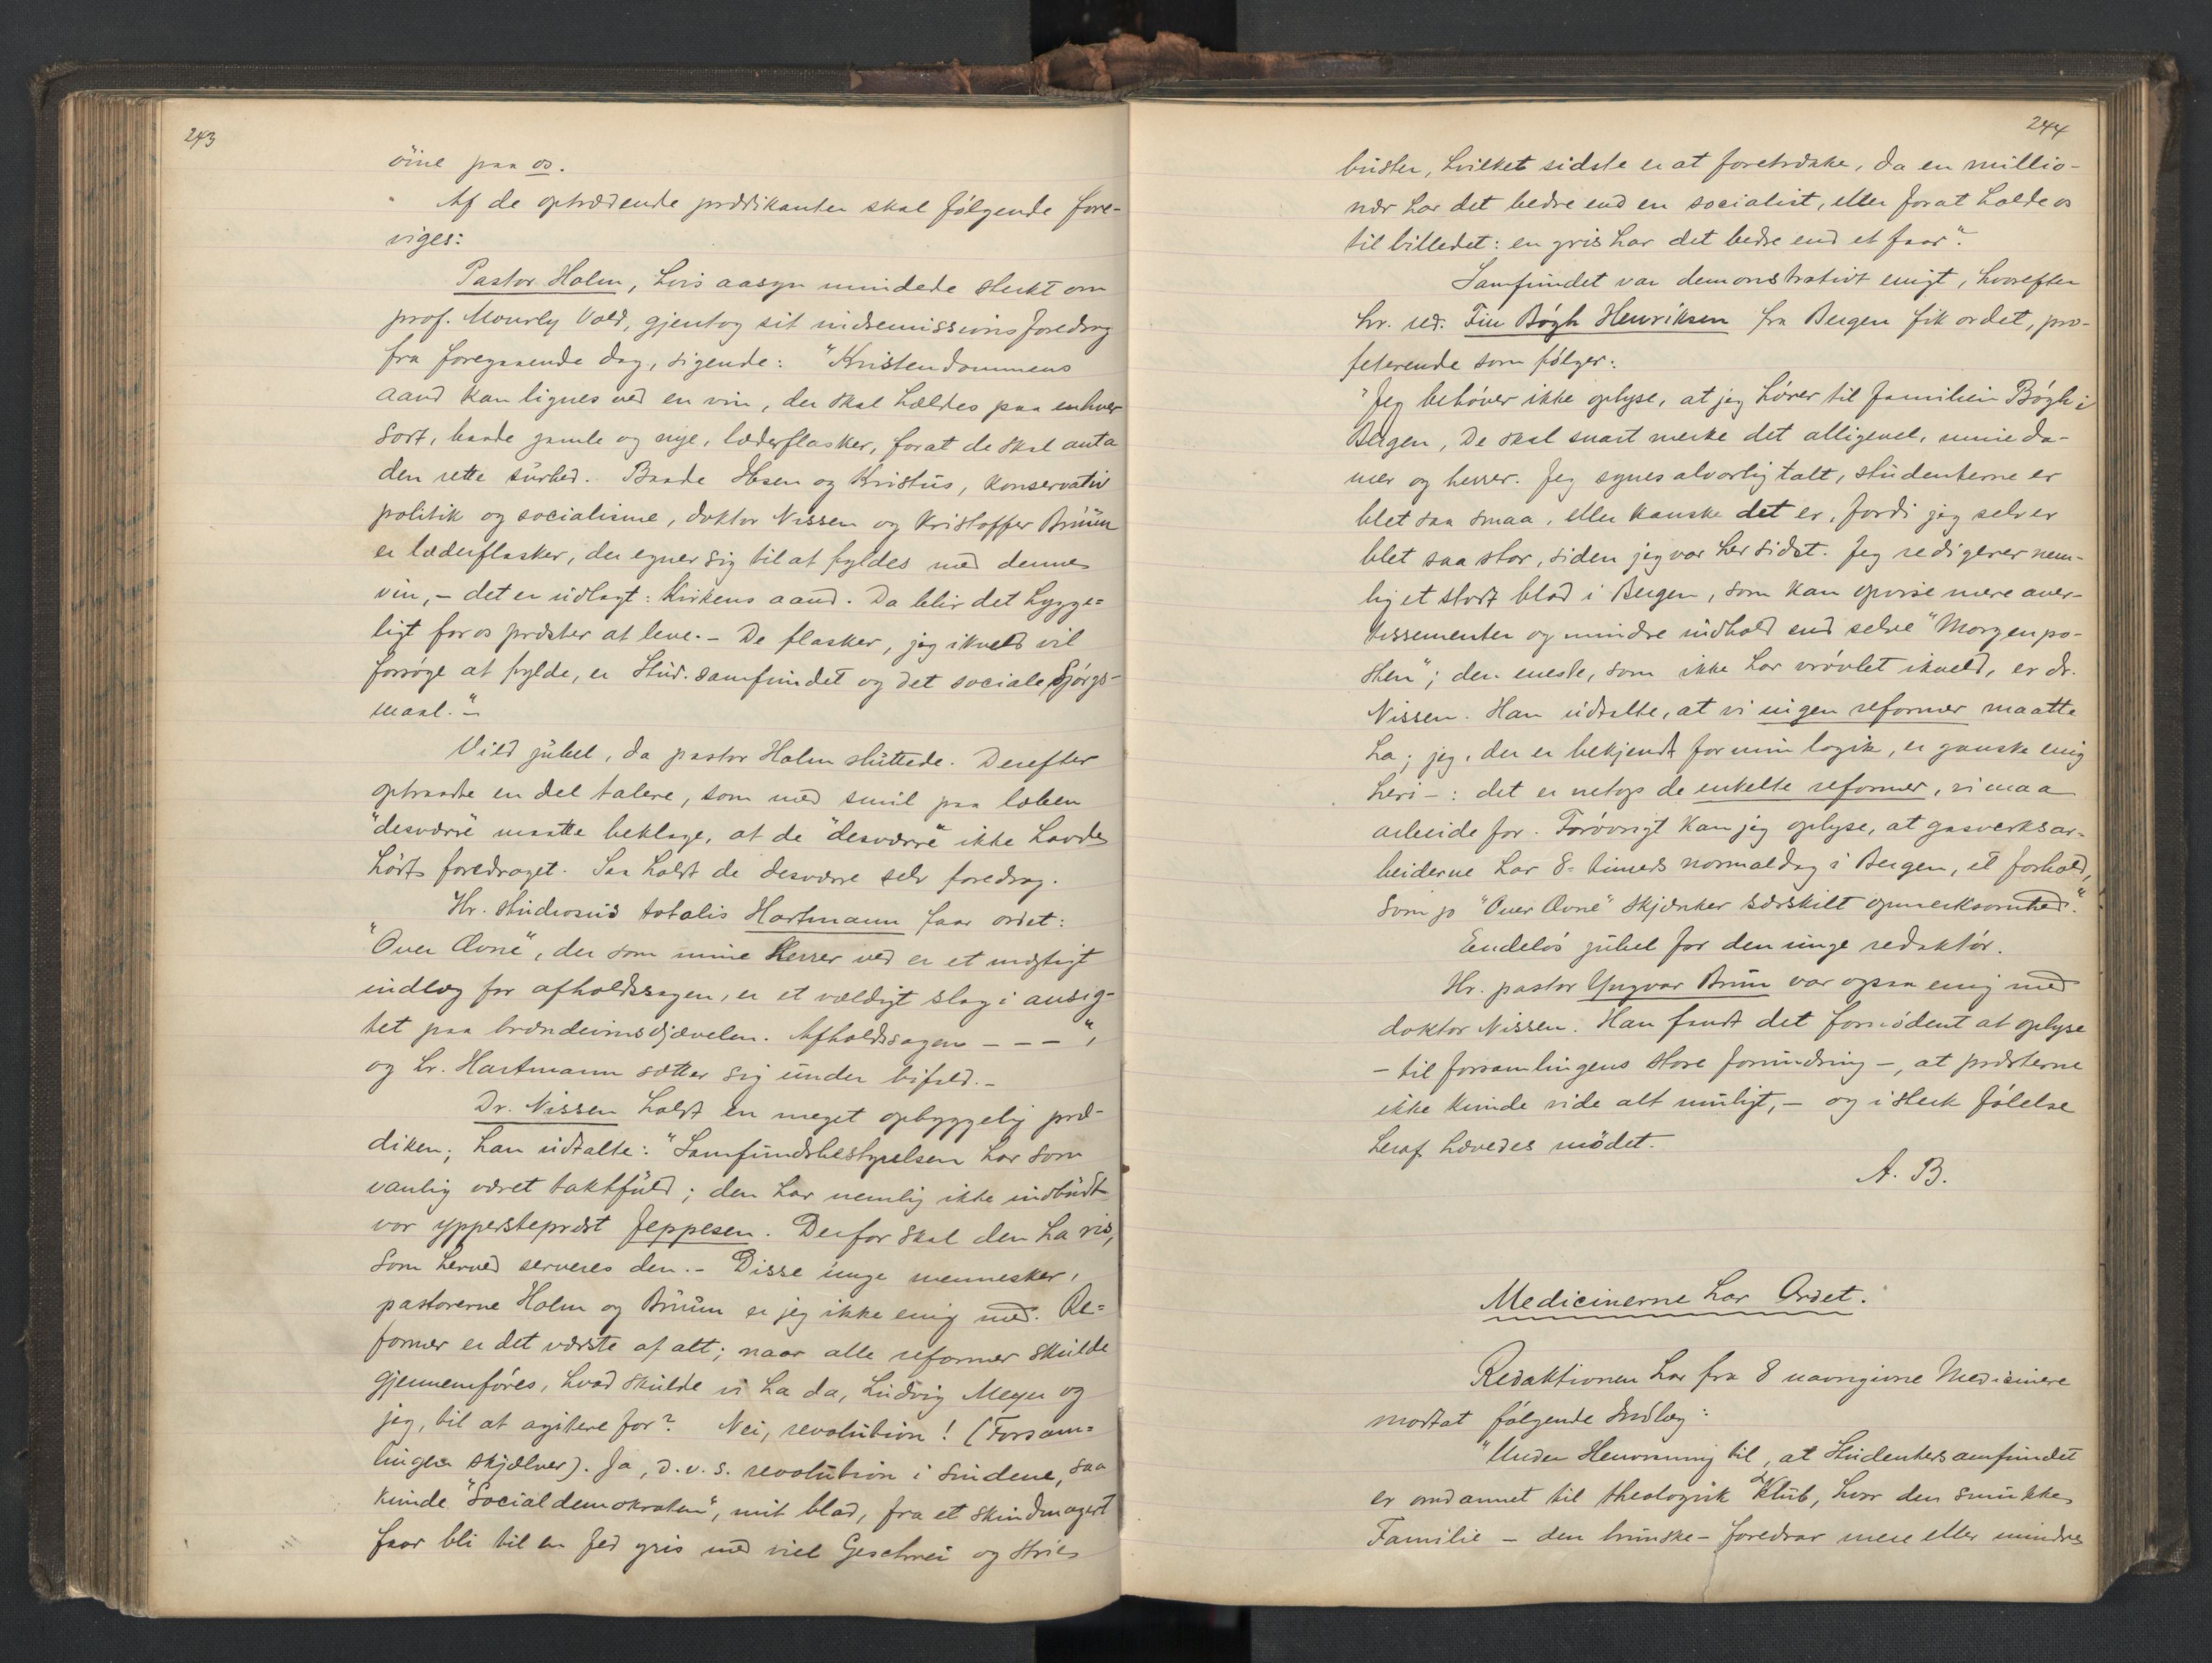 243
öine paa os.
Af de optrædende prædikanter skal følgende fore-
viges:
Pastor Holm, hvis aasyn mindede sterkt om
prof. Mourly Vold, gjentog sit indremissionsforedrag
fra foregaaende dag, sigende: "Kristendommens
aand kan lignes ved en vin, der skal hældes paa enhver
sort, baade gamle og nye, læderflasker, forat de skal anta
den rette surhed. Baade Ibsen og Kristus, konservativ
politik og socialisme, doktor Nissen og Kristoffer Bruun
er læderflasker, der egner sig til at fyldes med denne
vin, – det er udlagt: Kirkens aand. Da blir det hygge=
ligt for os prester at leve. – De flasker, jeg ikveld vil
forsøge at fylde, er Stud. samfundet og det sociale Spörgs-
maal." –
Vild jubel, da pastor Holm sluttede. Derefter
optraadte en del talere, som med smil paa læben
"desværre" maatte beklage, at de "desværre" ikke havde
hört foredraget. Saa holdt de desværre selv foredrag.
Hr. studiosus totalis Hartmann faar ordet:
"Over Ævne", der som mine Herrer ved er et mægtigt
indlæg for afholdssagen, er et vældigt slag i ansig-
tet paa brændevinsdjævelen. Afholdssagen – – – ",
og hr. Hartmann sætter sig under bifald. –
Dr. Nissen holdt en meget opbyggelig præ-
diken; han udtalte: "Samfundsbestyrelsen har som
vanlig været taktfuld; den har nemlig ikke indbudt
vor yppersteprest Jeppesen. Derfor skal den ha ris,
som herved serveres den. – Disse unge mennesker,
pastorerne Holm og Bruun er jeg ikke enig med. Re=
former er det værste af alt; naar alle reformer skulde
gjennemföres, hvad skulde vi ha da, Ludvig Meyer og
jeg, til at agitere for? Nei, revolution! (Forsam=
lingen skjælver). Ja, d.v.s. revolution i sindene, saa
kunde "Socialdemokraten", mit blad, fra et skindmagert
faar bli til en fed gris med viel Geschrei og stries
244
buster, hvilket sidste er at foretrække, da en millio-
nær har det bedre end en socialist, eller forat holde os
til billedet: en gris har det bedre end et faar".
Samfundet var demonstrativt enigt, hvorefter
hr. red. Fin Bøgh Henriksen fra Bergen fik ordet, pro-
feterende som følger:
"Jeg behøver ikke oplyse, at jeg hører til familien Bøgh i
Bergen, De skal snart merke det alligevel, mine da-
mer og herrer. Jeg synes alvorlig talt, studenterne er
blet saa smaa, eller kanske det er, fordi jeg selv er
blet saa stor, siden jeg var her sidst. Jeg redigerer nem-
lig et stort blad i Bergen, som kan opvise mere aver-
tissementer og mindre indhold end selve "Morgenpo-
sten"; den eneste, som ikke har vrøvlet ikveld, er dr.
Nissen. Han udtalte, at vi ingen reformer maatte
ha; jeg, der er bekjendt for min logik, er ganske enig
heri – : det er netop de enkelte reformer, vi maa
arbeide for. Forøvrigt kan jeg oplyse, at gasverksar-
beiderne har 8-timers normaldag i Bergen, et forhold,
som jo "Over Ævne" skjænker særskilt opmerksomhed."
Endeløs jubel for den unge redaktör.
Hr. pastor Yngvar Brun var ogsaa enig med
doktor Nissen. Han fandt det fornødent at oplyse
– til forsamlingens store forundring –, at presterne
ikke kunde vide alt muligt, – og i sterk følelse
heraf hævedes mödet.
A. B.
Medicinerne har Ordet.
Redaktionen har fra 8 navngivne Medicinere
modtat følgende Indlæg:
"Under Henvisning til, at Studentersamfundet
er omdannet til theologisk Klub, hvor den smukke
Familie – den brunske – foredrar mere eller mindre